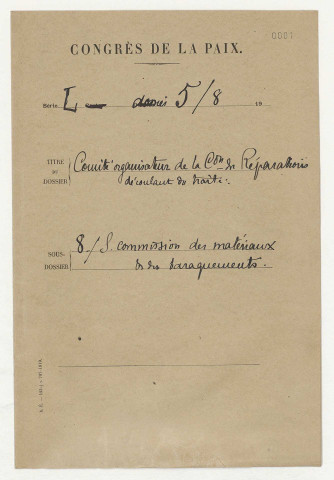 0001
CONGRÈS DE LA PAIX.
Série L — 5/8 19
TITRE DU DOSSIER
Comité organisateur de la Con des Réparations
découlant du traité.
SOUS-DOSSIER
8/S. commission des matériaux
et des baraquements.